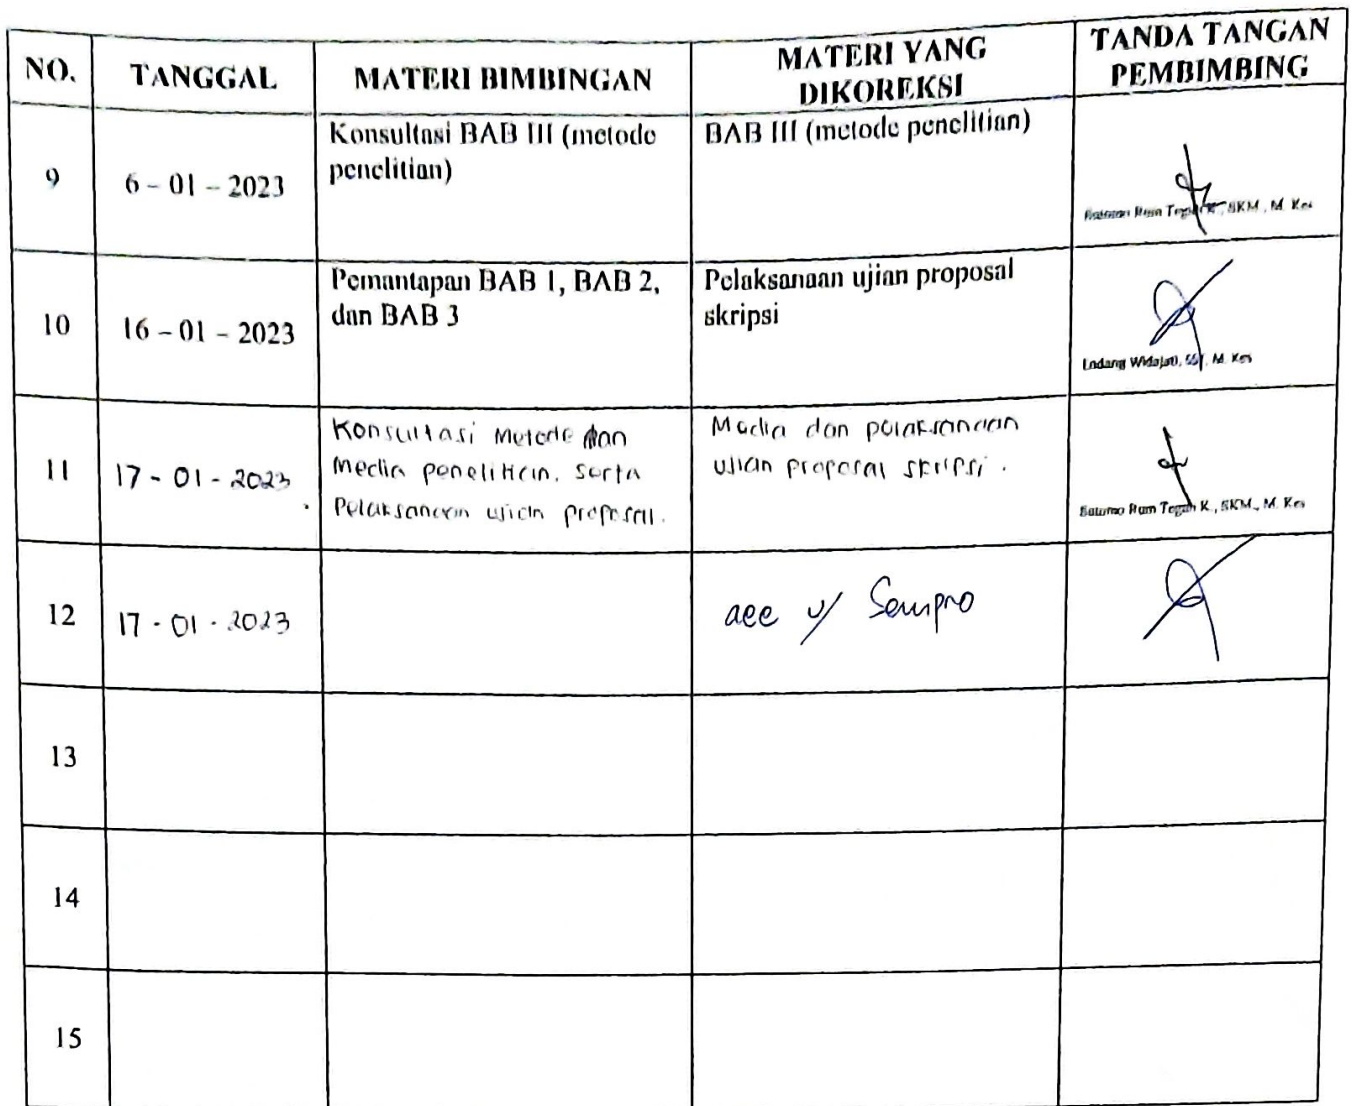 NO. TANGGAL MATERI BIMBINGAN MATERI YANG DIKOREKSI TANDA TANGAN PEMBIMBING
9 6 – 01 – 2023
Konsultasi BAB III (metode
penelitian)
BAB III (metode penelitian)
Ram Teguh K., SKM., M. Kes
10 16 – 01 – 2023
Pemantapan BAB 1, BAB 2,
dan BAB 3
Pelaksanaan ujian proposal
skripsi
Endang Widajati, SST, M. Kes
11 17 - 01 - 2023
Konsultasi Metode dan
Media penelitian. serta
Pelaksanaan ujian proposal.
Media dan pelaksanaan
ujian proposal skripsi.
Sutomo Rum Teguh K., SKM., M. Kes
12 17 - 01 - 2023
acc u/ Sempro
13
14
15